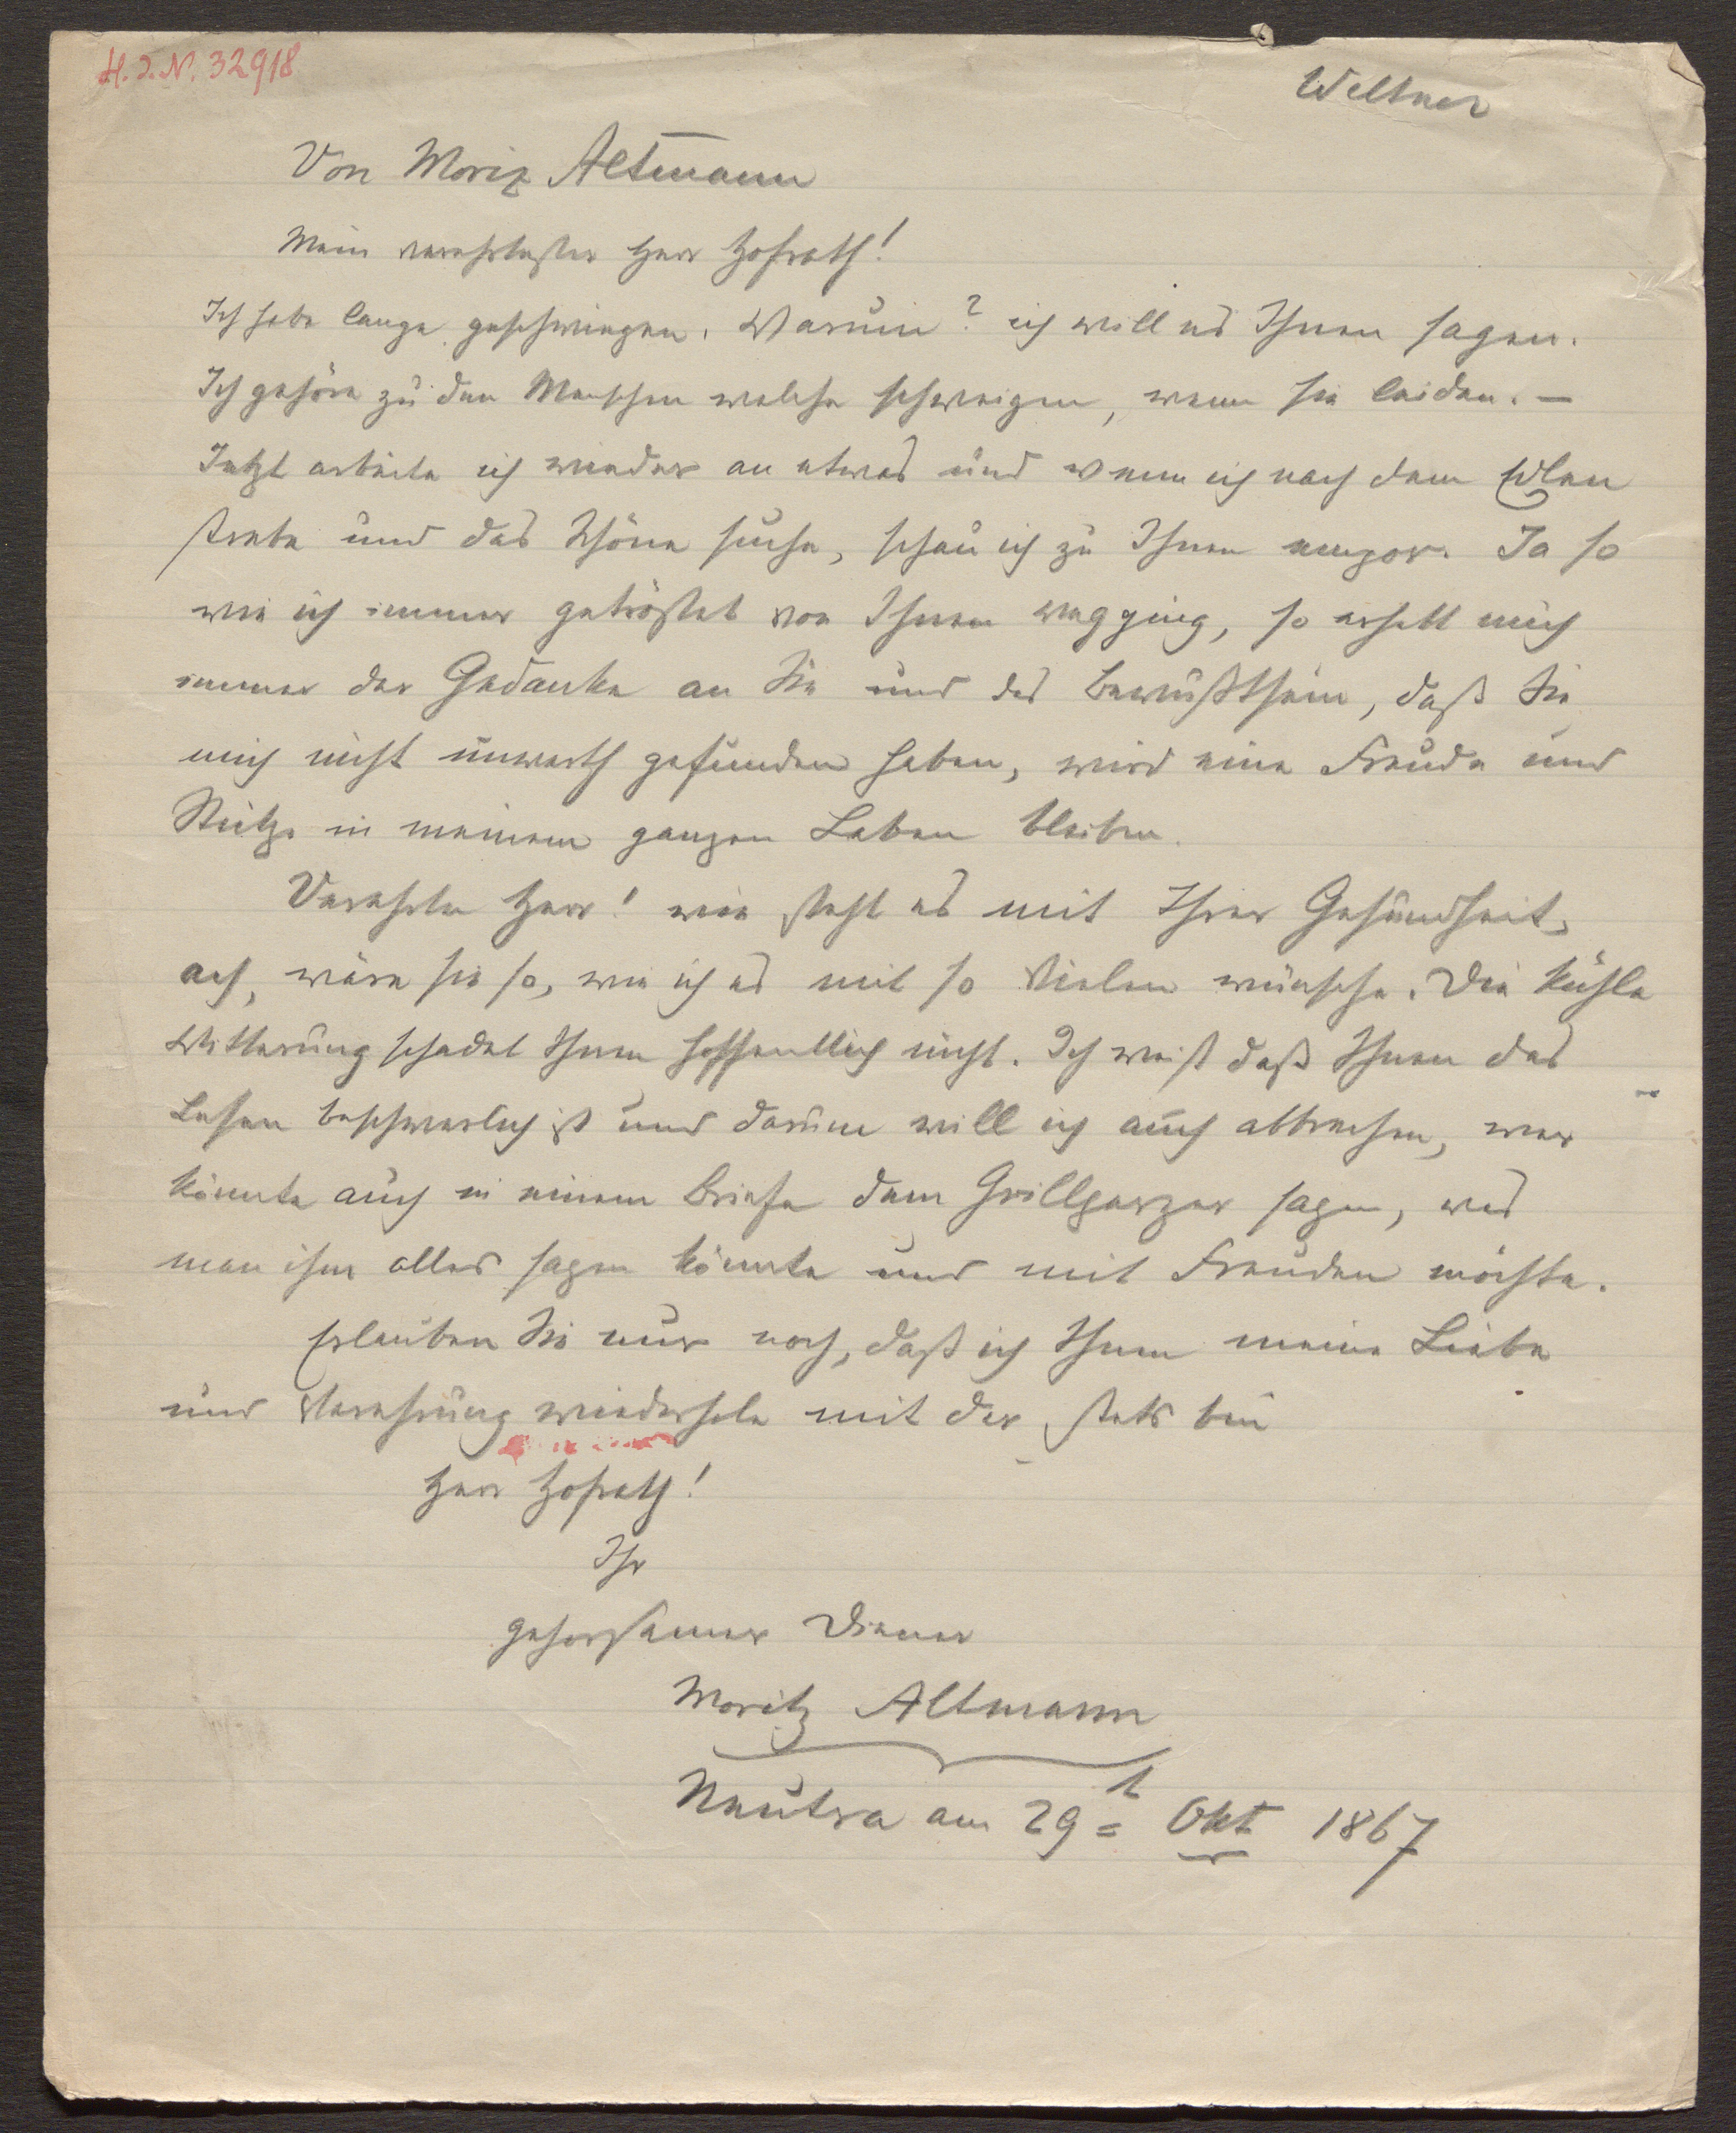 H. I. N. 32918
Weltner
Von Moriz Altmann
Mein verehrtester Herr Hofrath!
Ich habe lange geschwiegen. Warum? ich will es Ihnen sagen.
Ich gehöre zu den Menschen welche schweigen, wenn sie leiden. –
Jetzt arbeite ich wieder an etwas und wenn ich nach dem Edlen
strebe und das Schöne suche, schau ich zu Ihnen empor. Ja so
wie ich immer getröstet von Ihnen wegging, so erhellt mich
immer der Gedanke an Sie und das Bewußtsein, daß Sie
mich nicht unwerth gefunden haben, wird eine Freude und
Stütze in meinem ganzen Leben bleiben.
Verehrter Herr! wie steht es mit Ihrer Gesundheit,
ach, wäre sie so, wie ich es mit so Vielen wünsche. Die kühle
Witterung schadet Ihnen hoffentlich nicht. Ich weiß daß Ihnen das
Lesen beschwerlich ist und darum will ich auch abbrechen, wer
könnte auch in einem Briefe dem Grillparzer sagen, was
man ihm alles sagen könnte und mit Freuden möchte.
Erlauben Sie nur noch, daß ich Ihnen meine Liebe
und Verehrung wiederhole mit der stets bin
Herr Hofrath!
Ihr
gehorsamer Diener
Moritz Altmann
Neutra am 29t Okt 1867